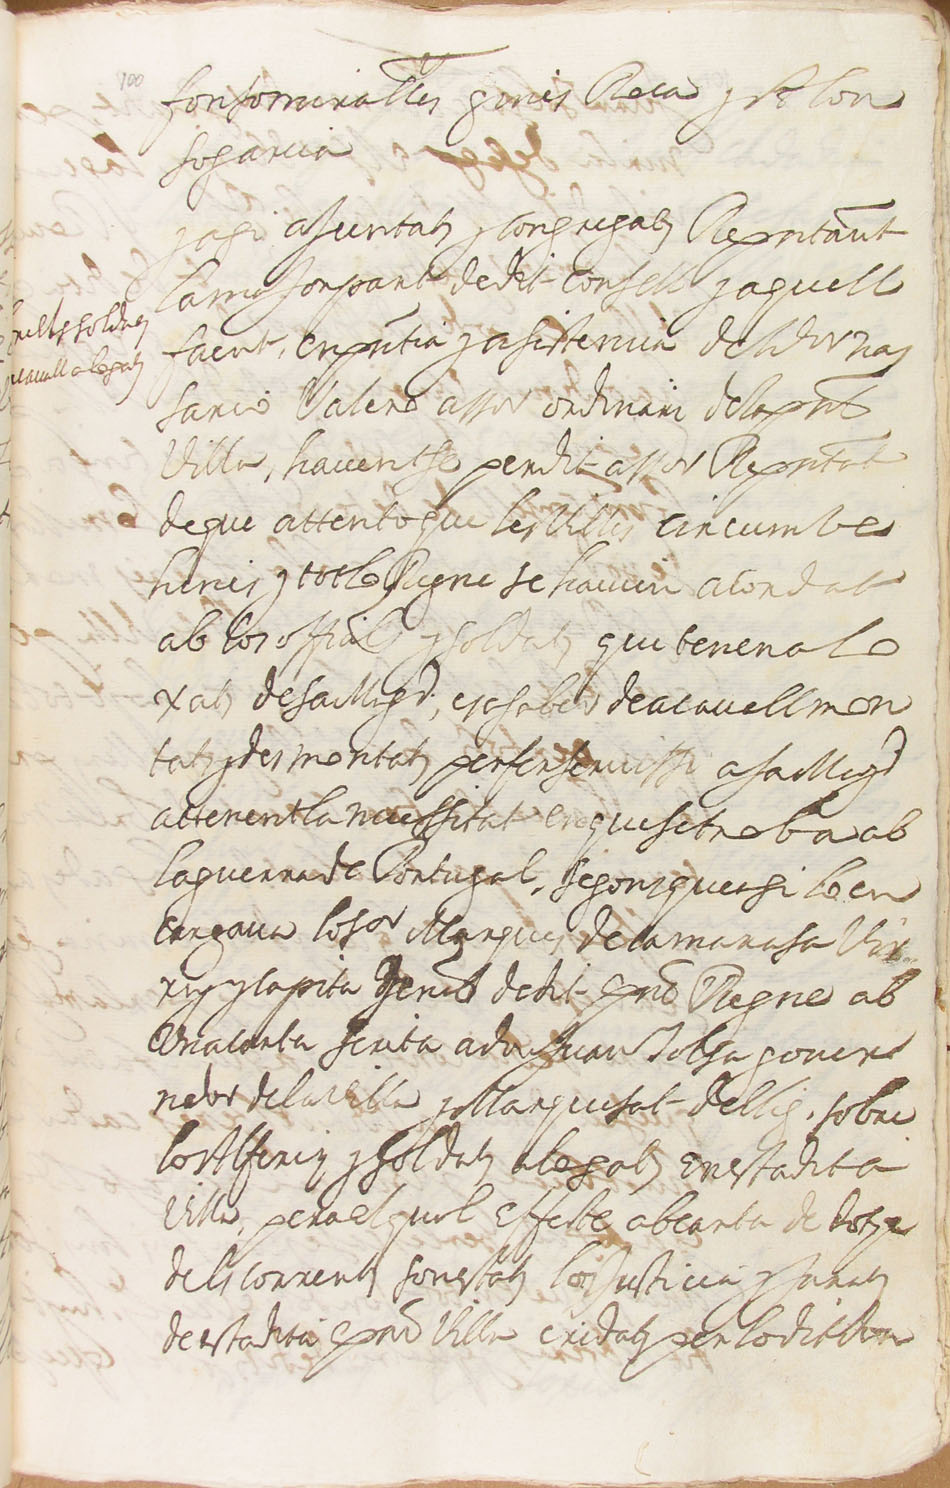 100
fons miralles ginis Roca y
so garcia
y axi ajuntats y congregats Repntant
la major part de dit consell y aquell
faent, en pntia y asistencia del
Valero assor ordinari de la pnt
Villa, havent se perdit assor Repntat
de que attento que les Viles circumve
hines y tot lo Regne se havien acordat
ab los offials y soldats que tenen alo
xats de sa Magd, es saber de a cavall mon
tats y desmontats per fer servissi a sa Magd
attenent la nesessitat en que se troba ab
la guerra de Portugal, segons que axi lo en
cargava lo sor Marques de Camarasa Vir
rey y Capita Genral de dit y pnt Regne ab
una carta scrita a don Juan gover
nador de la Villa y Marquesat de llig, sobre
los Alferis y soldats alogats en esta dita
Villa, pera el qual effecte ab carta de dotze
dels corrents son estats los Justicia y Jurats
de esta dita y pnt Villa cridats per lo dit don
soldats
de cavall alogats